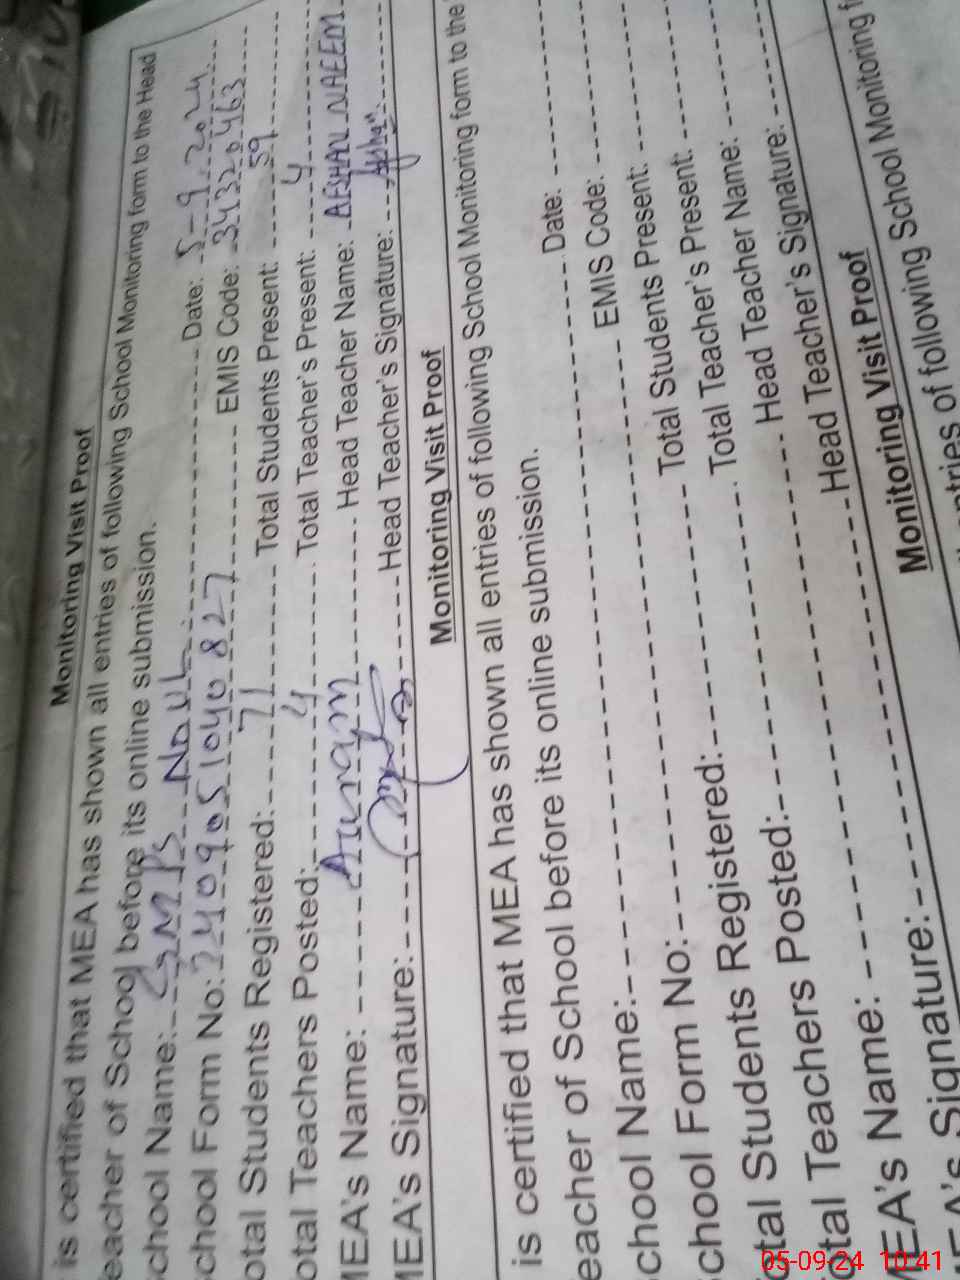 Monitoring Visit Proof
is certified that MEA has shown all entries of following School Monitoring form to the Head
eacher of School before its online submission.
chool Name: GMPS Date: 5-9-2024
chool Form No: 2409051040827 EMIS Code: 34320463
otal Students Registered: 71 Total Students Present: 59
otal Teachers Posted: 4 Total Teacher's Present: 4
MEA's Name: Head Teacher Name: AFSHAN NAEEM
MEA's Signature: Head Teacher's Signature:
Monitoring Visit Proof
is certified that MEA has shown all entries of following School Monitoring form to the
eacher of School before its online submission.
chool Name: Date:
chool Form No: EMIS Code:
otal Students Registered: Total Students Present:
otal Teachers Posted: Total Teacher's Present:
MEA's Name: Head Teacher Name:
EA's Signature: Head Teacher's Signature:
Monitoring Visit Proof
entries of following School Monitoring f
05-09-24 10:41